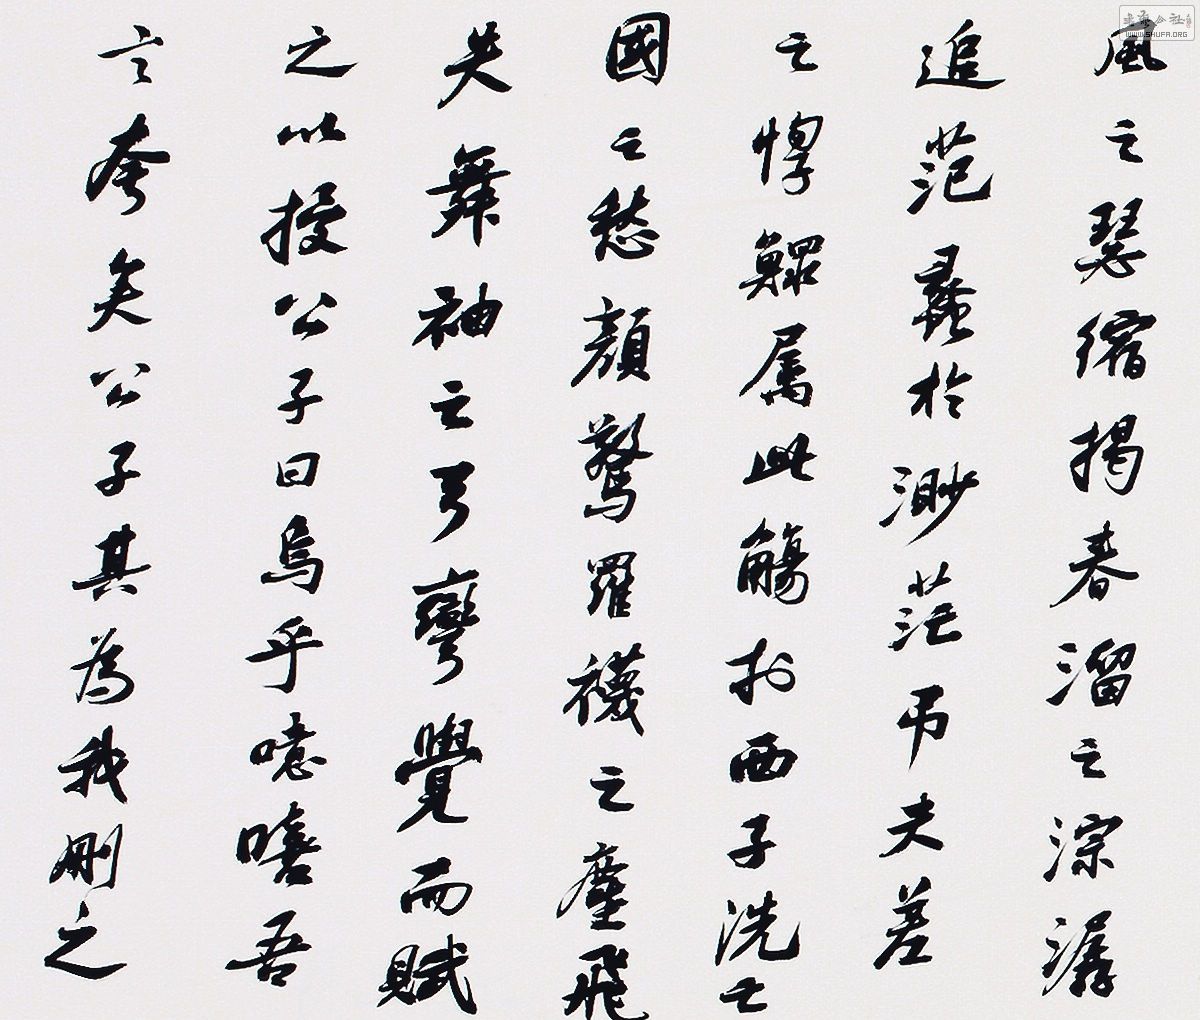 風之瑟縮揭春溜之淙潺
追范蠡於渺茫吊夫差
之惸鰥属此觴於西子洗亡
國之愁顏驚羅襪之塵飛
失舞袖之弓彎覺而賦
之以授公子曰烏乎噫嘻吾
言夸矣公子其為我刪之
WWW.SHUFA.ORG